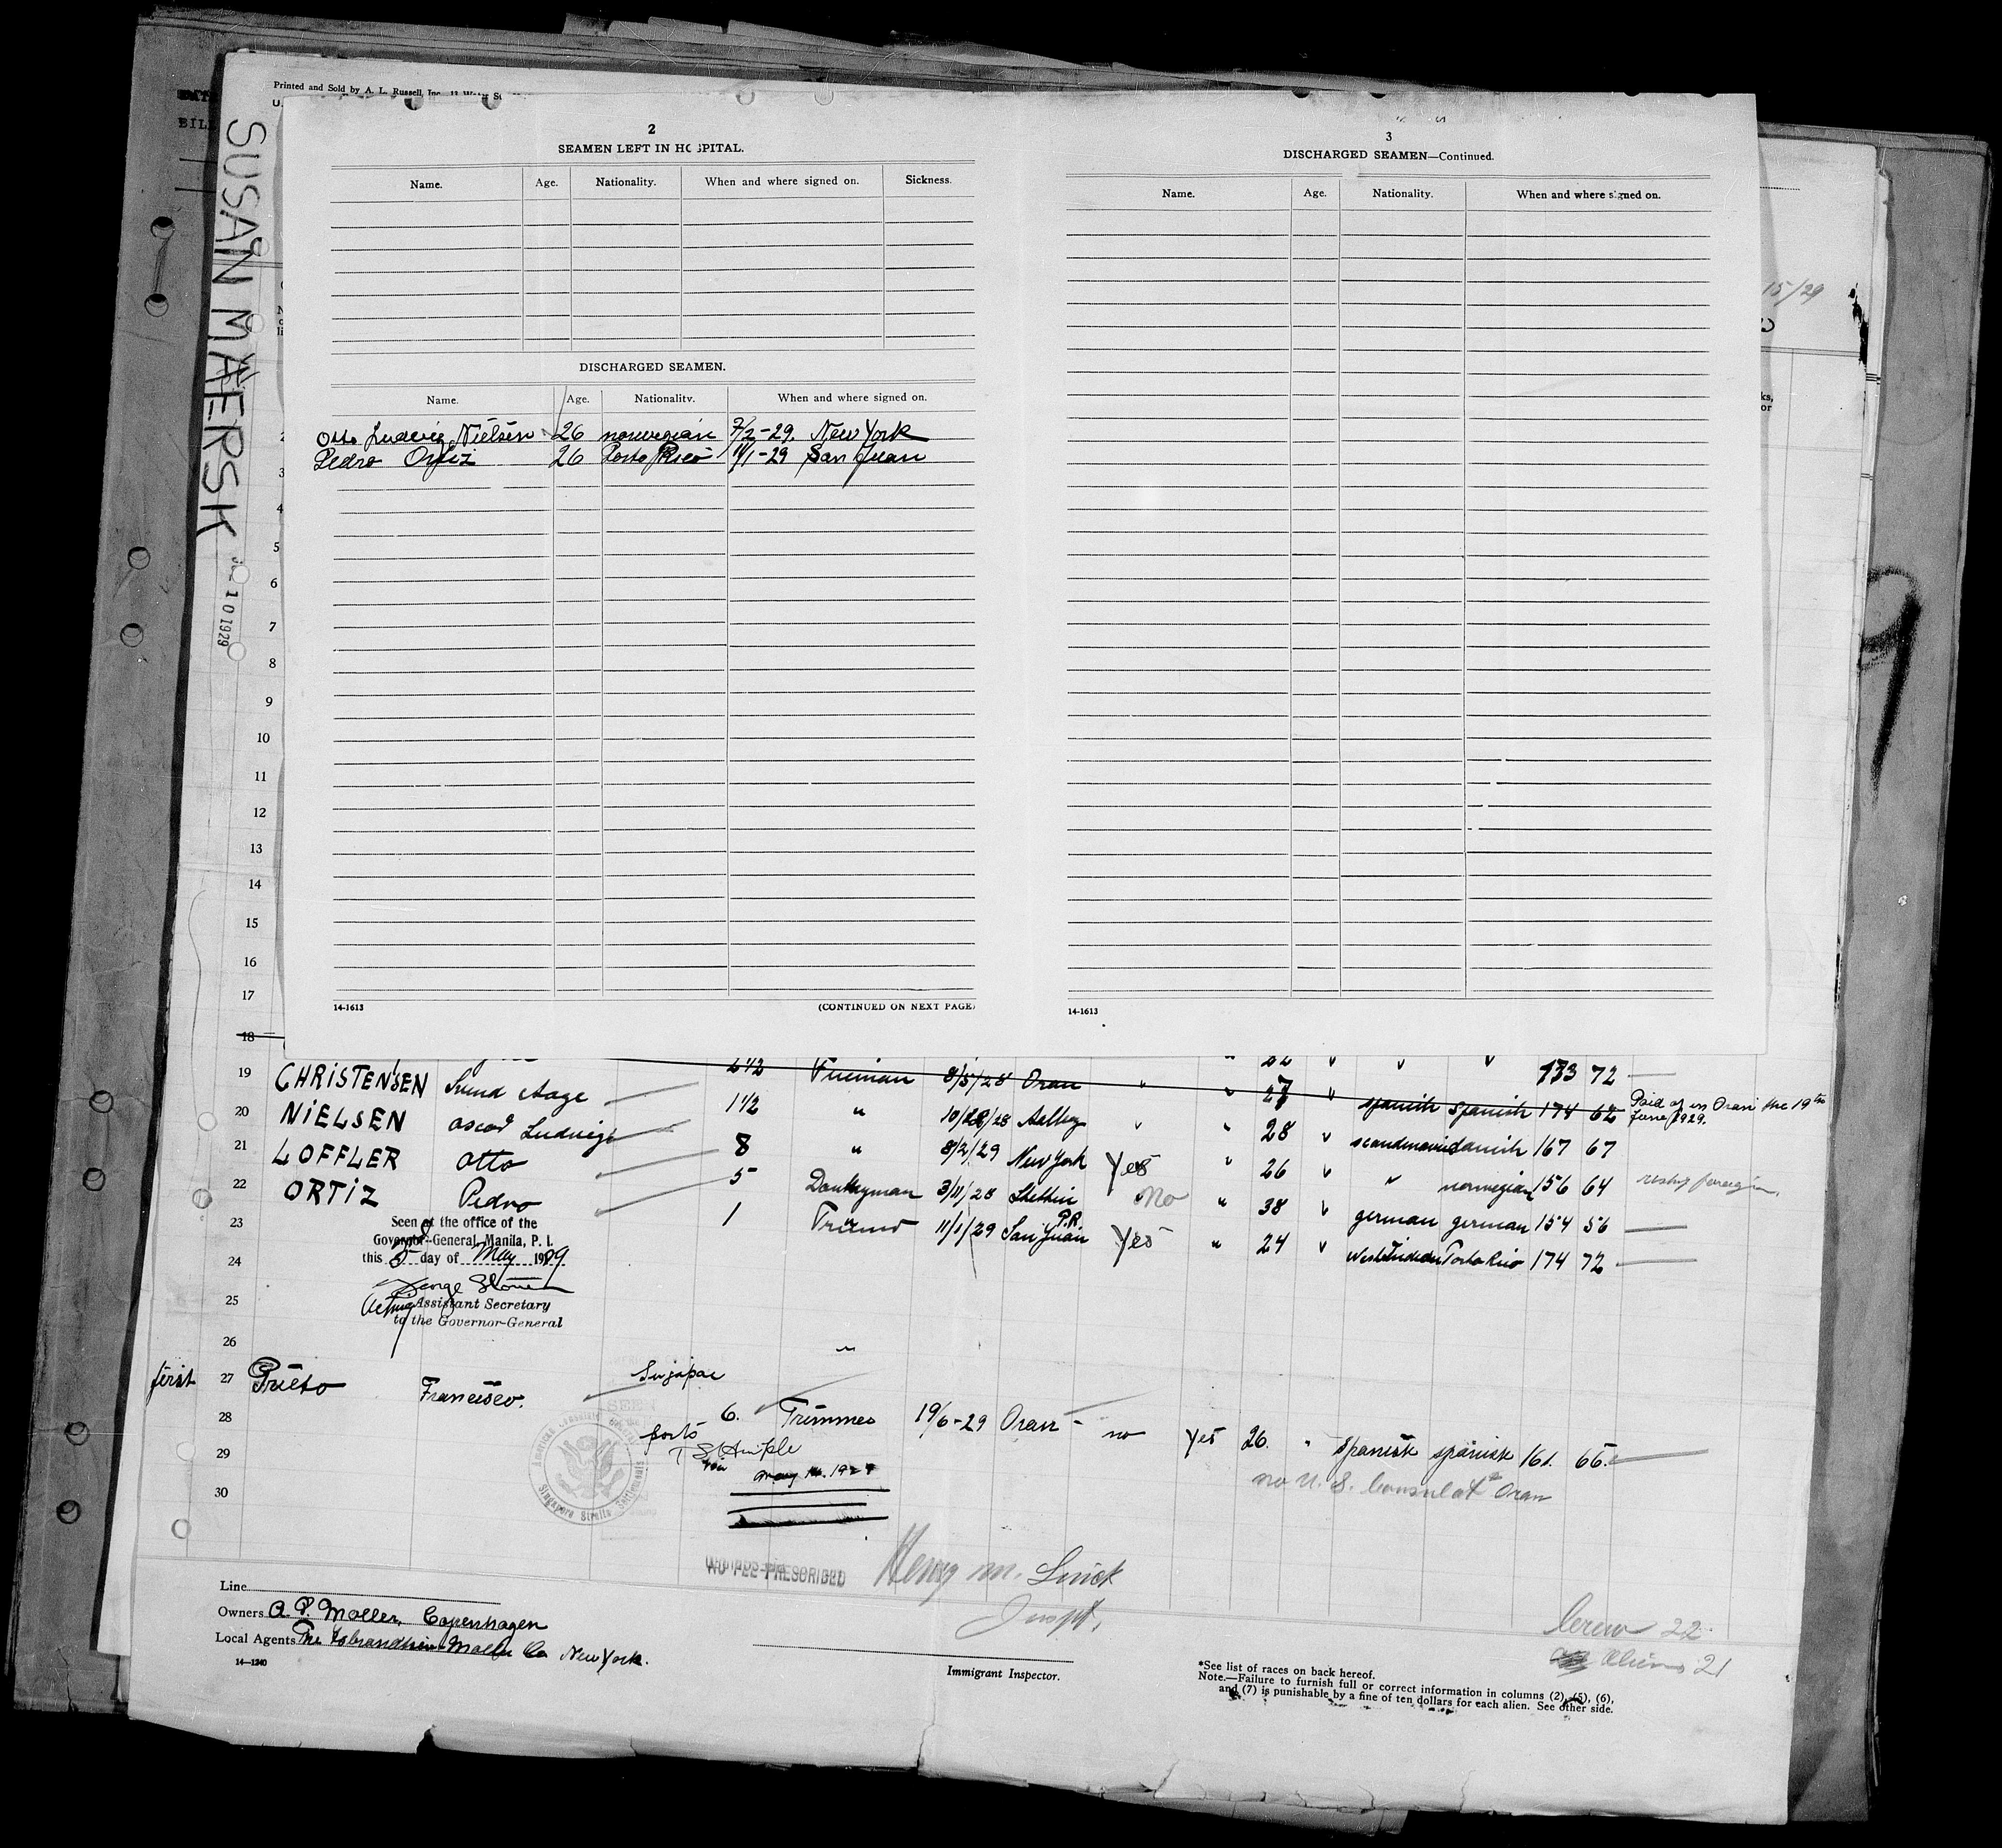 Printed and Sold by A. L. Russell, Inc.
SUSAN MÆRSK
10 1929
15/29
2
SEAMEN LEFT IN HOSPITAL.
Name. Age. Nationality. When and where signed on. Sickness.
DISCHARGED SEAMEN.
Name. Age. Nationality. When and where signed on.
Otto Ludwig Nielsen 26 norwegian 7/2-29. New York
Pedro Ortiz 26 Porto Rico 11/1-29 San Juan
14-1613 (CONTINUED ON NEXT PAGE)
3
DISCHARGED SEAMEN—Continued.
Name. Age. Nationality. When and where signed on.
14-1613
9
2
3
4
5
6
7
8
9
10
11
12
13
14
15
16
17
18
2 1/2 Fireman 8/5/28 Oran " 27 " spanish spanish 174 62 Paid of in Oran the 19th June 1929.
173 72
19 CHRISTENSEN Svend Aage 1 1/2 " 10/28/28 Aalborg " " 28 " scandinavien danish 167 67
20 NIELSEN Oscar Ludwig 8 " 8/2/29 New York Yes " 26 " " norwegian 156 64 reship foreign.
21 LOFFLER Otto 5 Donkeyman 3/11/28 Stettin no " 38 " german german 154 56
22 ORTIZ Pedro 1 Trimmer 11/1/29 San Juan P.R. Yes " 24 " Westindian Porto Rico 174 72
23
Seen at the office of the
Governor-General, Manila, P. I.
this 5 day of May 1929
24
George
25
Acting Assistant Secretary
to the Governor-General
26
first 27 Prieto Francisco. 6. Trimmer 19/6-29 Oran - no Yes 26. " spanish spanish 161. 65.
no U. S. Consulat Oran
28
29
30
SEEN
Singapore Straits Settlements
May 14. 1929
NO FEE PRESCRIBED
Henry M.
Inspt.
Line
Owners A. P. Moller, Copenhagen
Local Agents The Isbrandtsen-Moller Co New York.
14—1240
Immigrant Inspector.
Crew 22
Aliens 21
*See list of races on back hereof.
Note.—Failure to furnish full or correct information in columns (2), (5), (6),
and (7) is punishable by a fine of ten dollars for each alien. See other side.